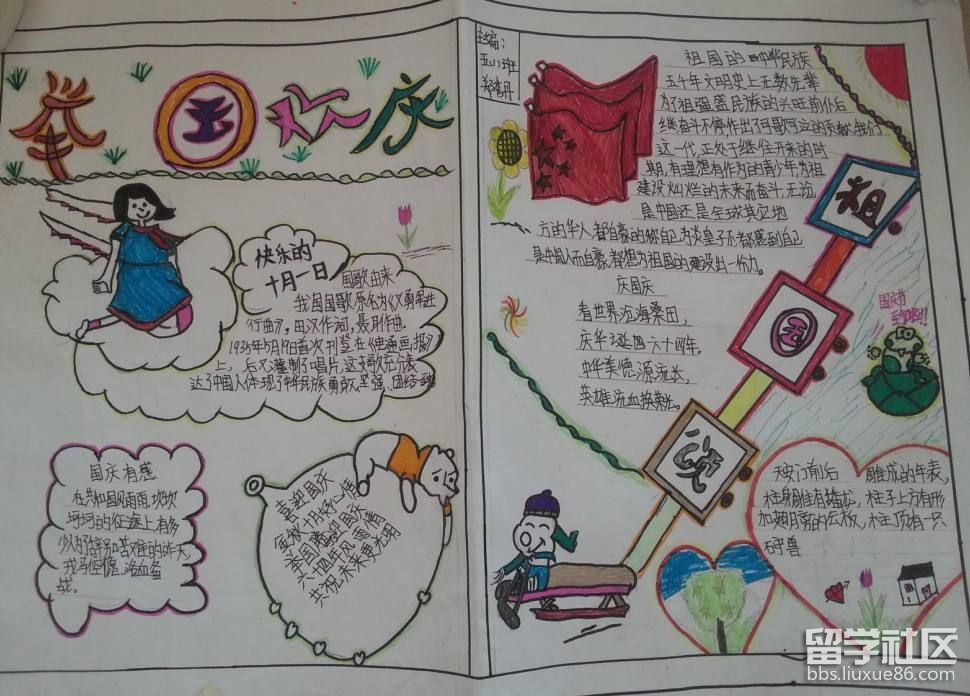 举国欢庆
快乐的
十月一日
国歌由来
我国国歌原名为《义勇军进
行曲》,田汉作词,聂耳作曲。
1935年5月19日首次刊登在《电通画报》
上,后
灌制了唱片,这支歌充分表
达了中国人体现了中华民族勇敢、坚强、团结
国庆有感
在共和国风雨雨,坎坎
坷坷的征途上,有多
少人们特别苦难的昨天,
浴血奋
战。
喜迎国庆
金秋十月好心情
举国腾欢迎国庆
六十四年风
共祝未来更光明
主编:
五(1)班
祖国的
中华民族
五千年文明史上无数先辈
为了祖强富民族的兴旺前仆后
继奋斗不停作出了可歌可泣的贡献我们
这一代,正处于继往开来的时
期,有理想有作为的青少年为祖
建设灿烂的未来而奋斗,无论
是中国还是全球其它地
方的华人都自豪的称自己为炎皇子不都感到自己
是中国人而自豪,都想为祖国的建设出一份力。
庆国庆
看世界沉海桑田,
庆华诞四六十四年。
中华美德源流长,
英雄流血换来
祖
国
颂
国庆节
到啦!!
天安门前后
雕成的华表,
柱身雕有
柱子上方有形
加翅
的云板,柱顶有一只
石兽
留学社区
bbs.liuxue86.com